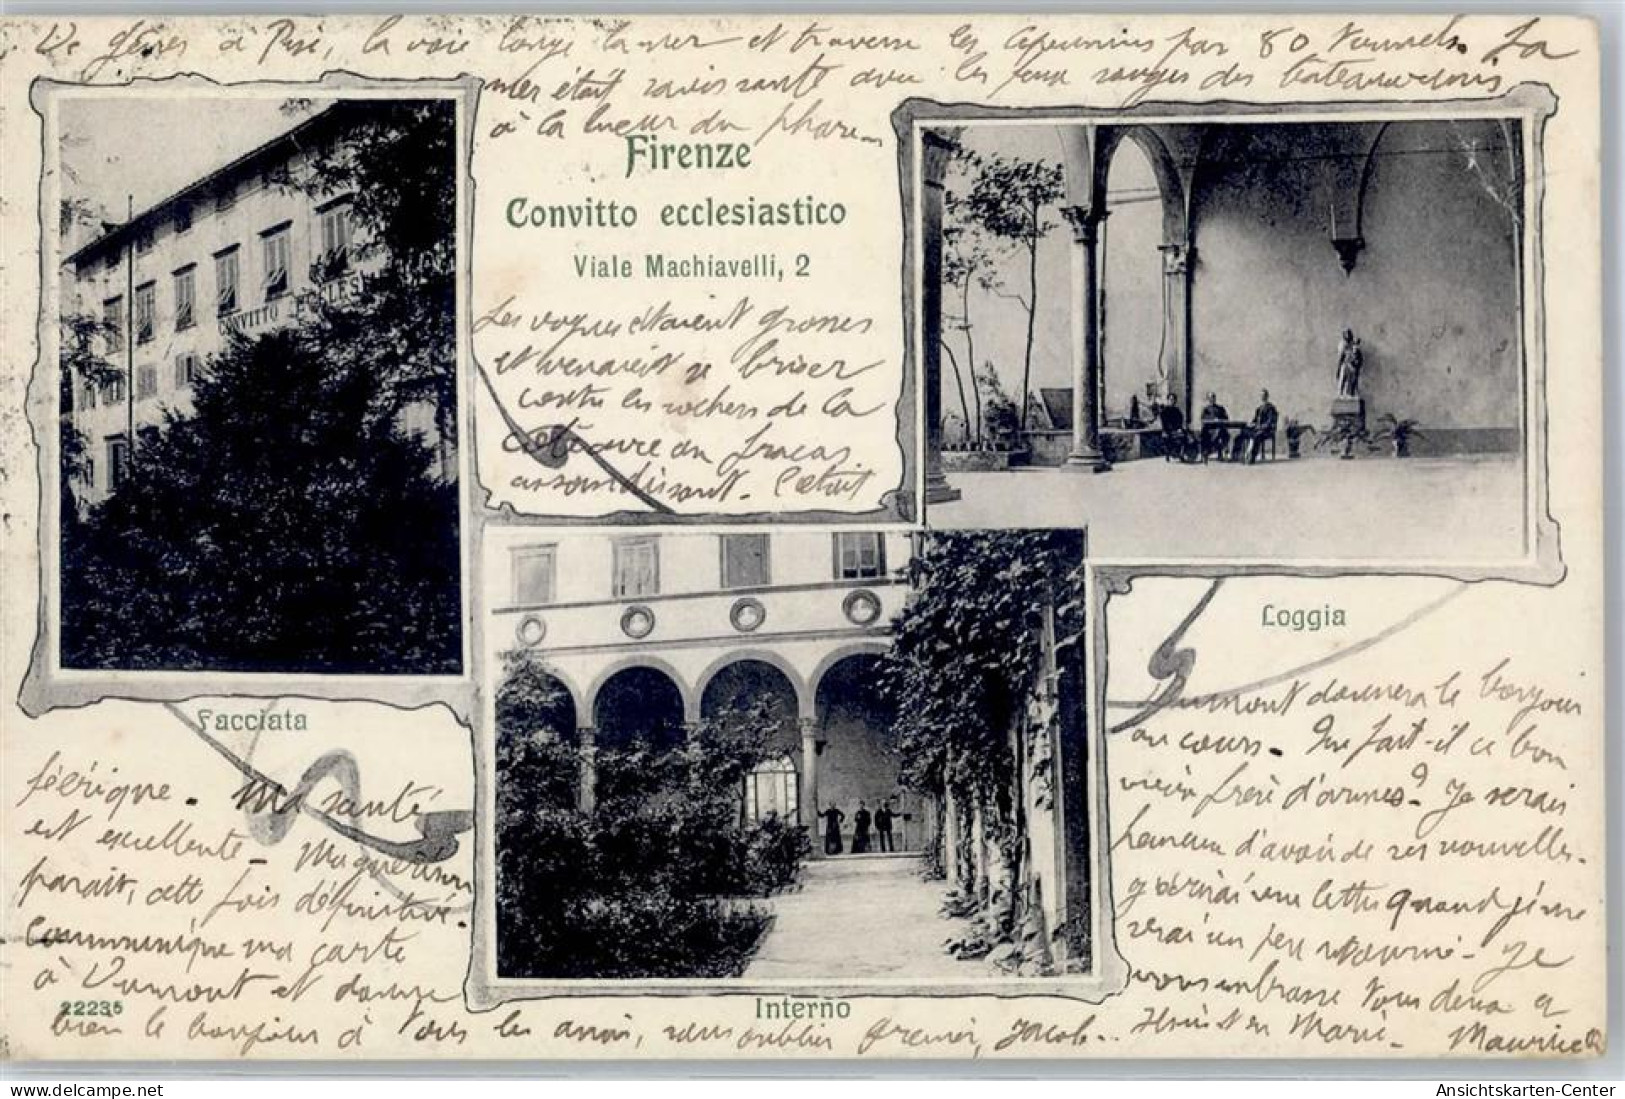 De Gênes à Pise, la voie longe la mer et traverse les Apennins par 80 tunnels. La
mer était ravissante avec les feux rouges des
à la lueur du phare.
Firenze
Convitto ecclesiastico
Viale Machiavelli, 2
Les vagues étaient grosses
et venaient se briser
contre les rochers de la
côte avec un fracas
assourdissant. C'était
CONVITTO ECCLES
Facciata
Loggia
Interno
22236
féérique. Ma santé
est excellente.
parait, cette fois définitive.
Communique ma carte
à Dumont et donne
bien le bonjour à tous les amis, sans oublier Grenier, Jacob..
Dumont donnera le bonjour
au cours. Que fait-il ce bon
vieux frère d'armes? Je serais
heureux d'avoir de ses nouvelles.
J'écrirai une lettre quand je me
serai un peu retourné. Je
vous embrasse tous deux et
Marie. Maurice
Ansichtskarten-Center